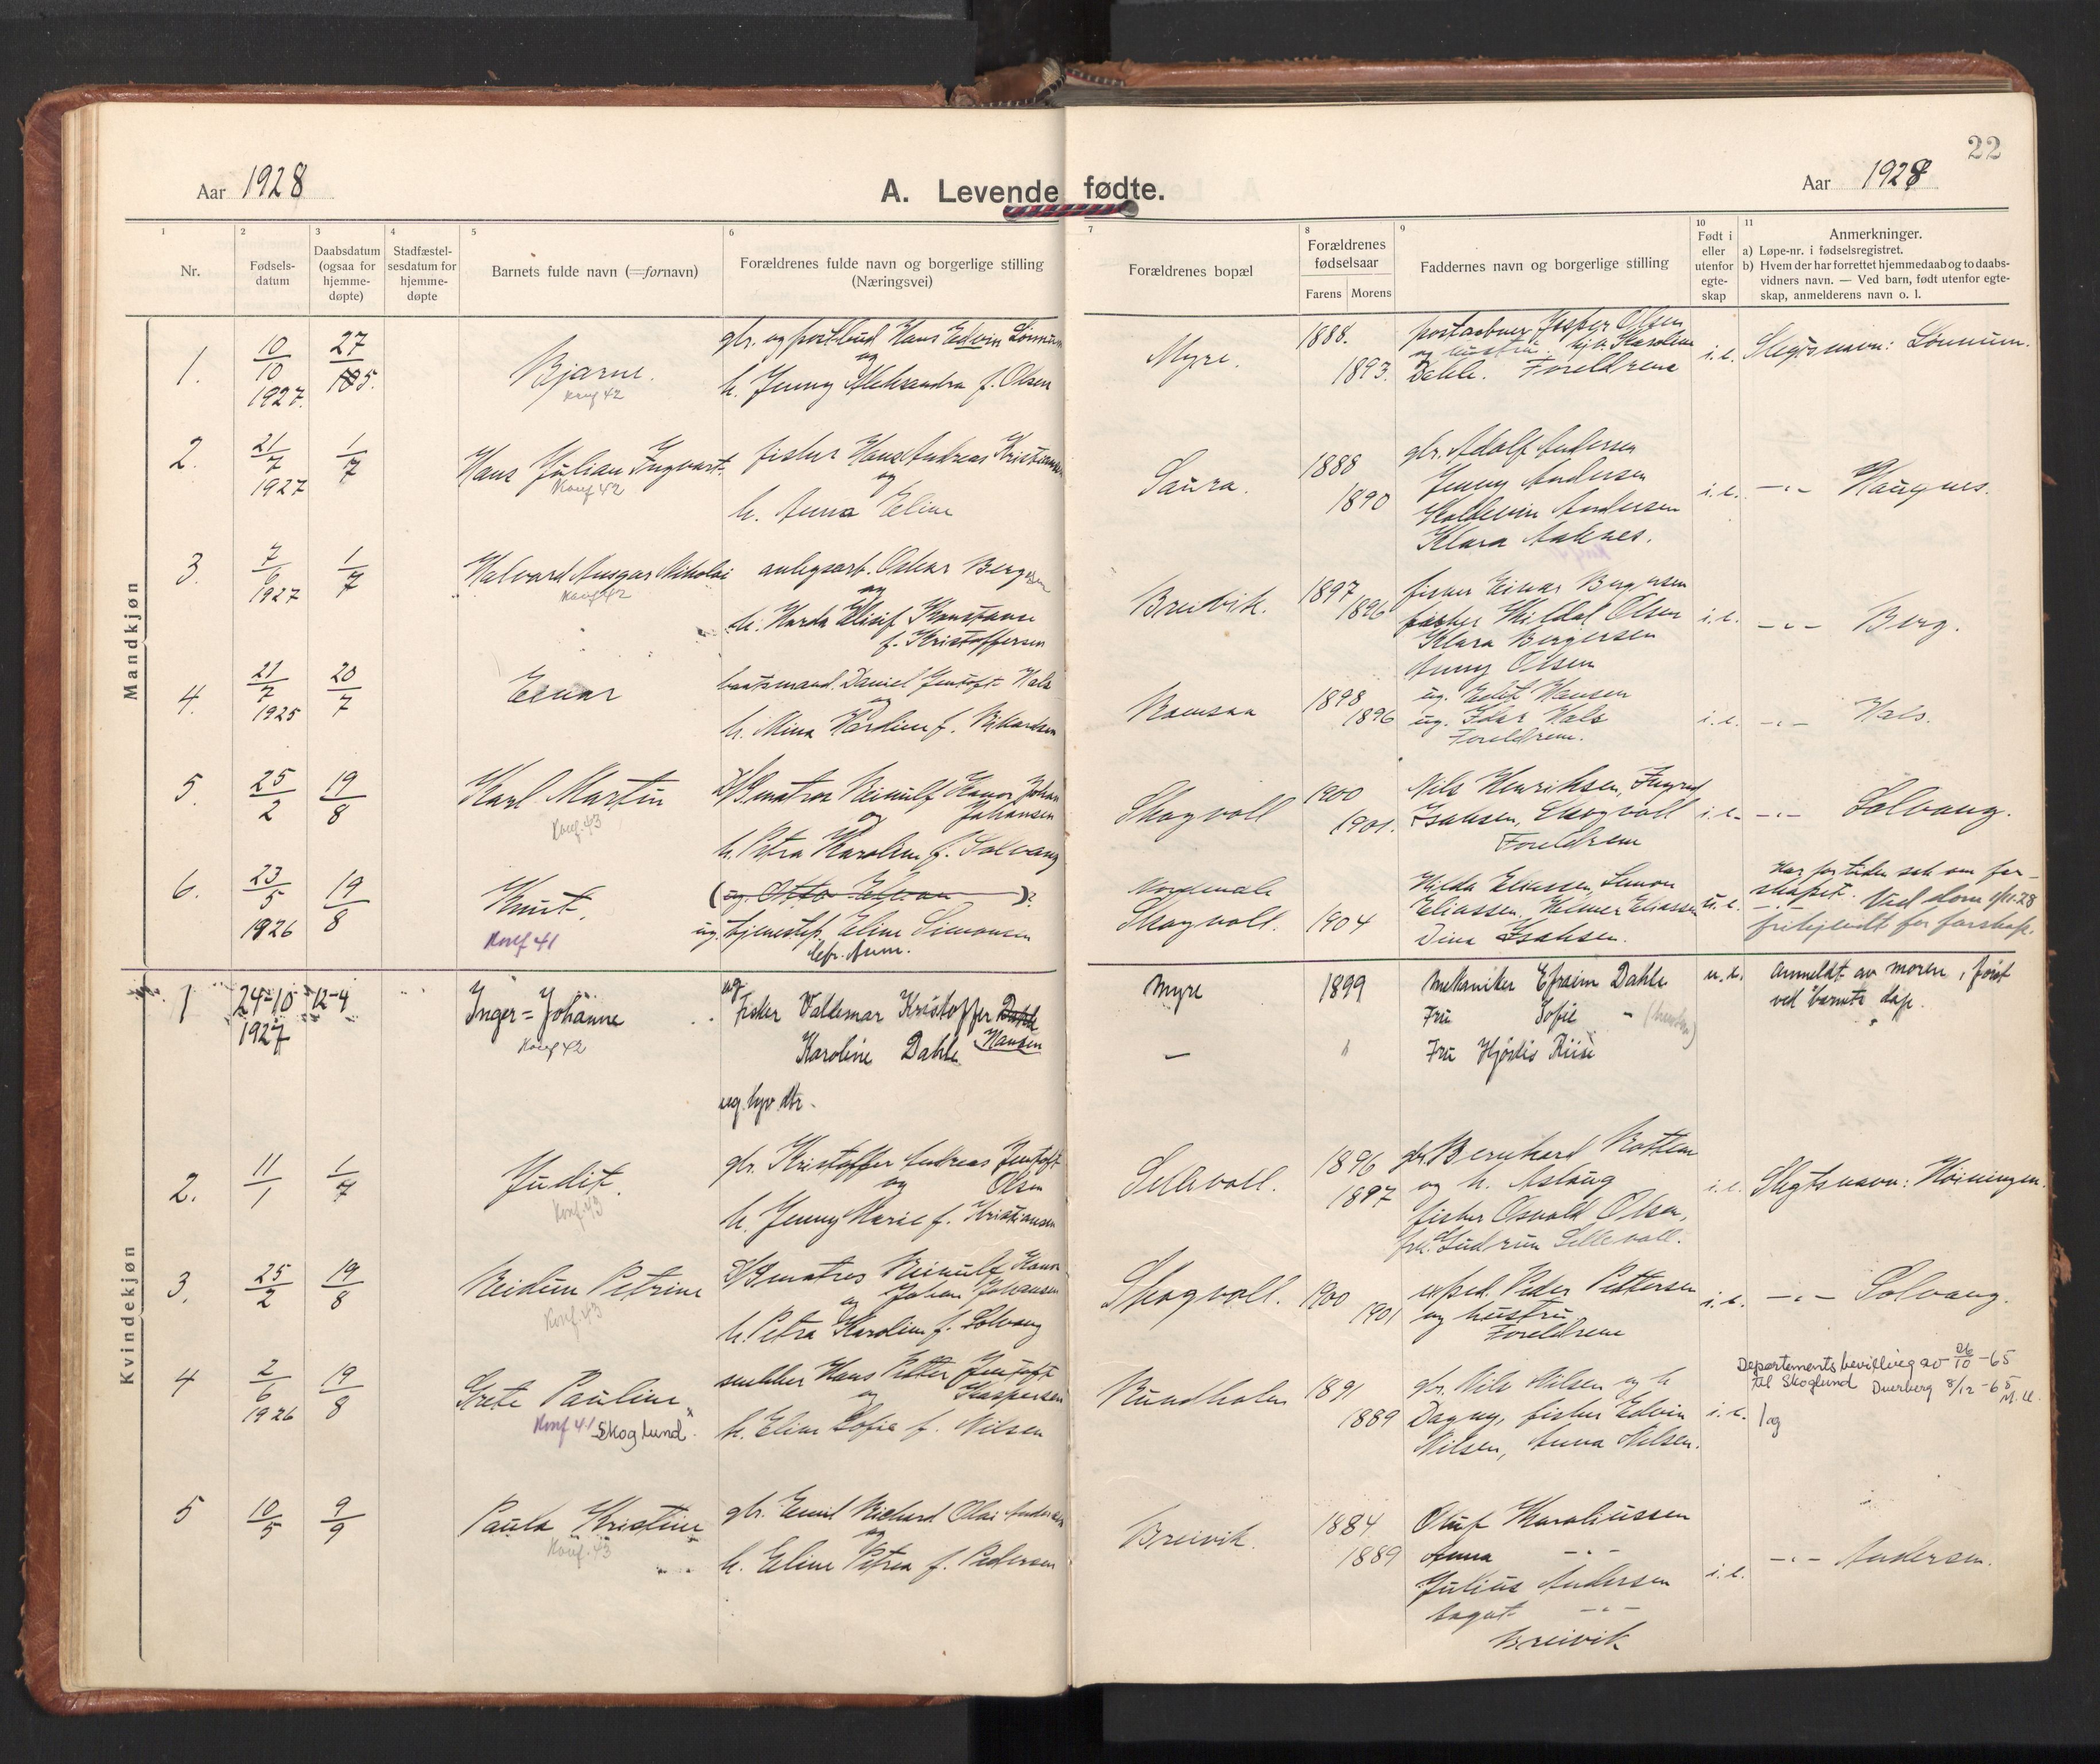 22
Aar 1928
A. Levende fødte.
Aar 1928
1
2
3
4
5
6
7
8
9
10
11
Nr.
Fødsels-
datum
Daabsdatum
(ogsaa for
hjemme-
døpte)
Stadfæstel-
sesdatum for
hjemme-
døpte
Barnets fulde navn (=fornavn)
Forældrenes fulde navn og borgerlige stilling
(Næringsvei)
Forældrenes bopæl
Forældrenes
fødselsaar
Farens Morens
Faddernes navn og borgerlige stilling
Født i
eller
utenfor
egte-
skap
Anmerkninger.
a) Løpe-nr. i fødselsregistret.
b) Hvem der har forrettet hjemmedaab og to daabs-
vidners navn. — Ved barn, født utenfor egte-
skap, anmelderens navn o. l.
Mandkjøn
1.
10/10
1927.
27/5.
Bjarne.
Konf 42
gbr. og postbud Hans Edvin Lönnum
og
h. Jenny Aleksandra f. Olsen
Myre.
1888.
1893.
postaabner Jesper Olsen
og hustru, Karoline
Dahle. Foreldrene
i.e.
Slegtsnavn: Lönnum.
2.
21/7
1927
1/7
Hans Julian Ingvart.
Konf 42
fisker Hans Andreas Kristiansen
og
h. Anna Eline
Saura.
1888
1890
gbr. Adolf Andersen
Jenny Andersen
Haldevin Andersen
Klara Aaknes.
i.e.
-"- Haugnes.
3.
7/6
1927
1/7
Halvard Ansgar Nikolai
Konf 42
anlegsarb. Oskar Bergersen
og
h. Harda Elisif Konstanse
f. Kristoffersen
Breivik.
1897
1896
fisker Einar Bergersen
fisker Hildal Olsen
Klara Bergersen
Anny Olsen
i.e.
-"- Berg.
4.
21/7
1925
20/7
Einar
baatsmand. Daniel Jentoft Hals
og
h. Mina Hardine f. Rikardsen
Ramsaa
1898
1896
ug. Edit Hansen
ug. Idar Hals
Foreldrene.
i.e.
-"- Hals.
5.
25/2
19/8
Karl Martin
Konf. 43
D/S matros Reinulf Konor Johan
og Johansen
h. Petra Karoline f. Solvang
Skogvoll
1900
1901.
Nils Henriksen, Ingrid
Isaksen, Skogvoll
Foreldrene
i.e.
-"- Solvang.
6.
23/5
1926
19/8
Knut.
Konf 41
(ug. Otto )?
ug. tjenestep. Eline Simonsen
cfr. Anm.
Nordmela
Skogvoll.
1904
Hilda Eliassen, Simon
Eliassen, Helmer Eliassen
Dina Isaksen.
u.e.
Har for tiden sak om far-
skapet. Ved dom 9/11.28
frikjendt for farskap.
Kvindekjøn
1
24-10
1927
12-4
Inger=Johanne
Konf 42
ug
Fisker Valdemar Kristoffer Dahle
Hansen
Karoline Dahle
ug. hjv. dtr.
Myre
—
1899
"
Mekaniker Efraim Dahle
Fru Sofie — (hustru)
Fru Hjördis Riise
u.e.
Anmeldt av moren, först
ved barnets dåp.
2.
11/1
1/7
Judit.
Konf. 43
gbr. Kristoffer Andreas Jentoft
og Olsen
h. Jenny Marie f. Kristiansen
Sellevoll.
1896
1897
gbr. Bernhard Rottem
og h. Aslaug
fisker Osvald Olsen,
frk. Gudrun Sellevoll.
i.e.
Slegtsnavn: Höiningen.
3.
25/2
19/8
Reidun Petrine
Konf. 43
D/S matros Reinulf Konor
og Johan Johansen
h. Petra Karoline f. Solvang
Skogvoll.
1900
1901
exped. Peder Pettersen
og hustru
Foreldrene
i.e.
-"- Solvang.
4
2/6
1926
19/8
Grete Pauline
Konf 41 Skoglund.x
snekker Hans Petter Jentoft
og Kaspersen
h. Eline Sofie f. Nilsen
Rundholm
1891
1889
gbr. Nils Nilsen og h
Dagny, fisker Edvin
Nilsen, Anna Nilsen.
i.e.
Departementsbevilling av 26/10-65
til Skoglund Dverberg 8/12-65
5
10/5
9/9
Paula Kristine
Konf. 43
gbr. Emil Richard Olai Andersen
og
h. Eline Petrea f. Pedersen
Breivik.
1884
1889
Oluf Karoliussen
Anna -"-
Julius Andersen
Aagot -"-
Breivik
i.e.
-"- Andersen.